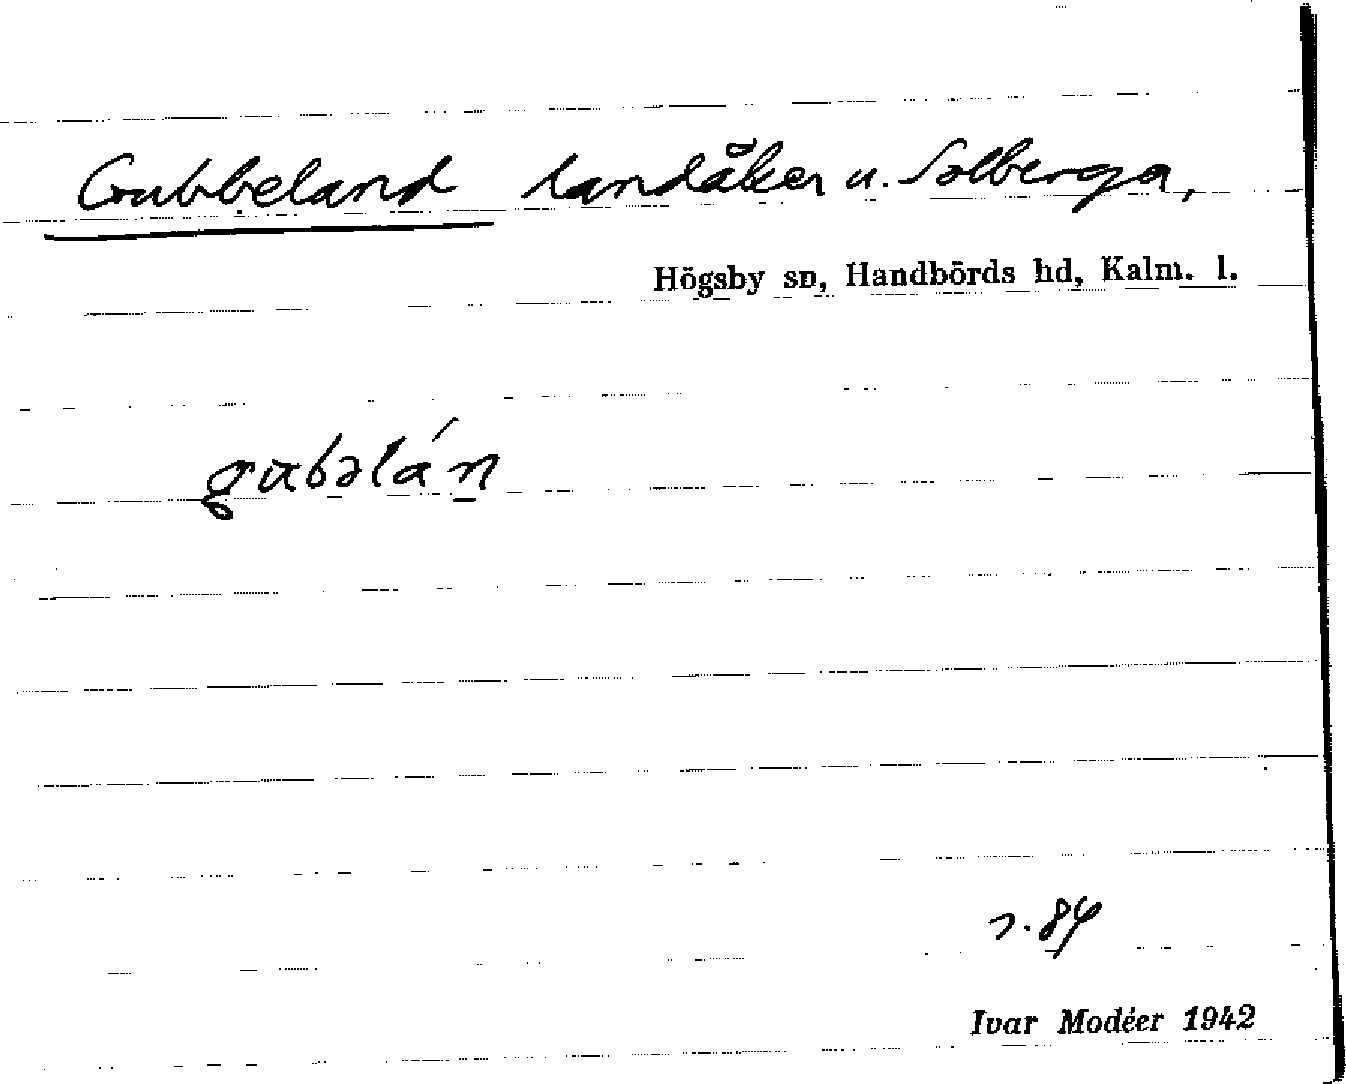 Gubbeland landåker u. Solberga,
Högsby sn, Handbörds hd, Kalm. l.
gubəlán
s. 84
Ivar Modéer 1942